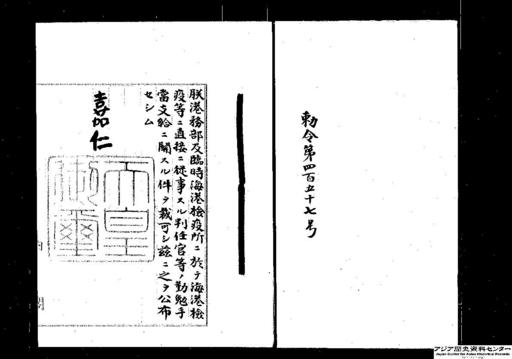 勅令第四百五十七号
朕港務部及臨時海港検疫所ニ於テ海港検
疫等ニ直接ニ従事スル判任官等ノ勤勉手
當支給ニ関スル件ヲ裁可シ茲ニ之ヲ公布
セシム
嘉仁
天皇
御璽
アジア歴史資料センター
Japan Center for Asian Historical Records